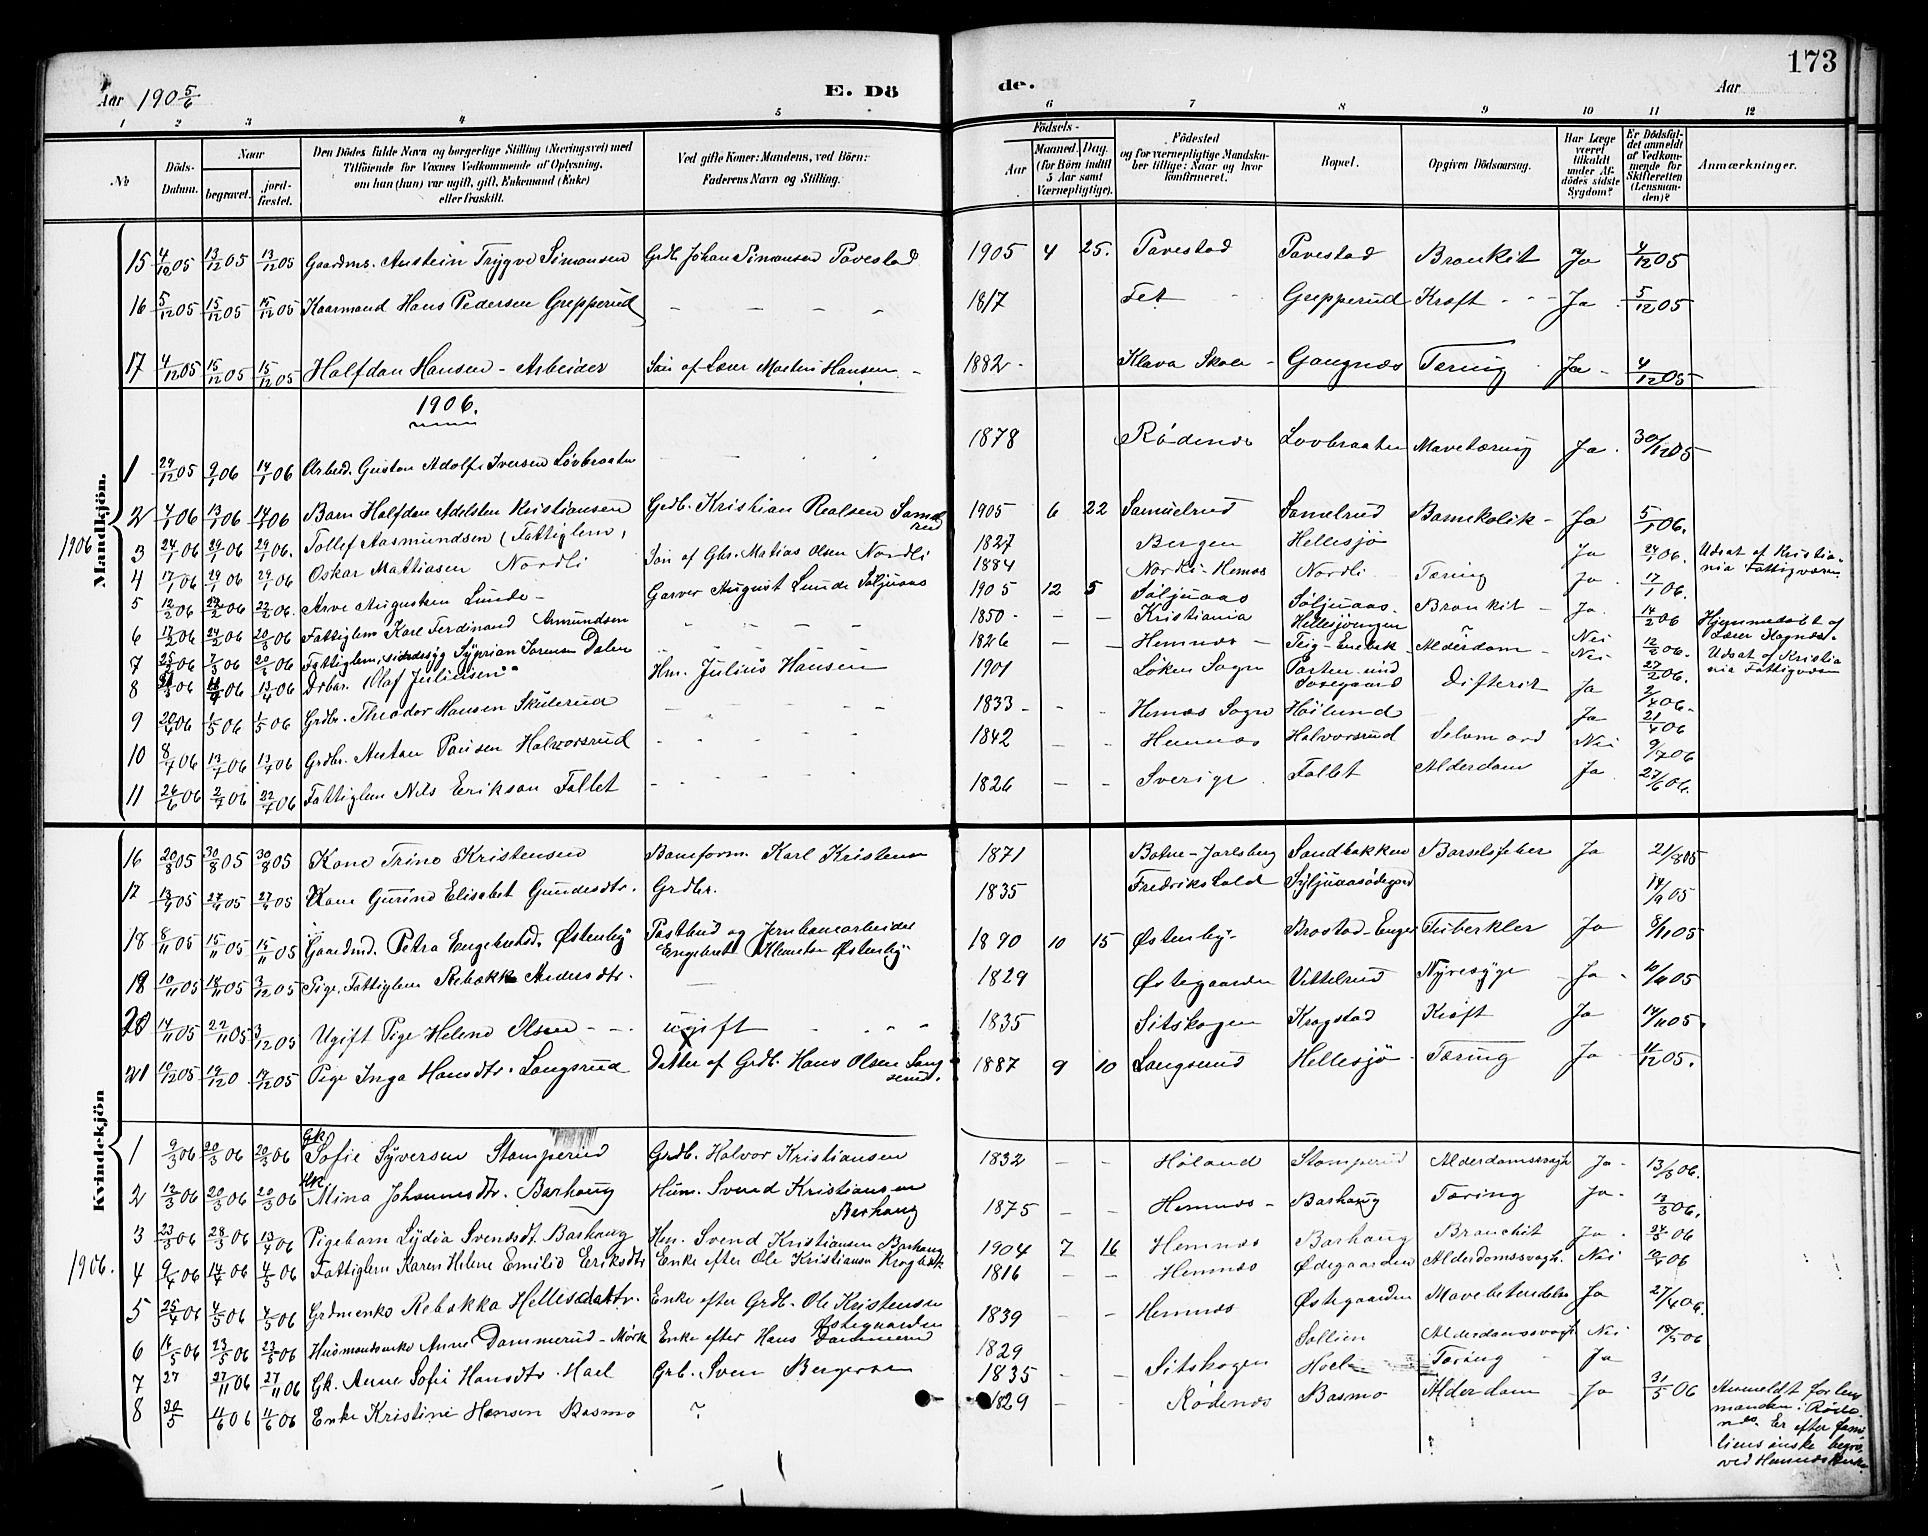 173
Aar 190 5/6 E. Dö de. Aar
1 2 3 4 5 6 7 8 9 10 11 12
No Döds-Datum. Naar begravet. jordfæstet. Den Dödes fulde Navn og borgerlige Stilling (Næringsvei) med Tilföiende for Voxnes Vedkommende af Oplysning, om han (hun) var ugift, gift, Enkemand (Enke) eller fraskilt. Ved gifte Koner: Mandens, ved Börn: Faderens Navn og Stilling. Födsels- Aar Maaned. Dag. (for Börn indtil 5 Aar samt Værnepligtige). Födested og for værnepligtige Mandskaber tillige: Naar og hvor konfirmeret. Bopæl. Opgiven Dödsaarsag. Har Læge været tilkaldt under Afdödes sidste Sygdom? Er Dödsfaldet anmeldt af Vedkommende for Skifteretten (Lensmanden)? Anmærkninger.
Mandkjön.
15 4/12 05 13/12 05 13/12 05 Gaardms. Anstein Trygve Simonsen Grdb. Johan Simonsen Tovestad 1905 4 25. Tavestad Tavestad Bronkit Ja 4/12 05
16 5/12 05 15/12 05 15/12 05 Kaarmand Hans Pedersen Grepperud - - - - 1817 Fet Grepperud Kræft Ja 5/12 05
17 4/12 05 15/12 05 15/12 05 Halfdan Hansen - Arbeider Søn af Lærer Martin Hansen - 1882 - Kleva Skole - Gangnæs Tæring Ja - 4/12 05
1906.
1906
1 29/12 05 9/1 06 14/1 06 Arbed. Gustav Adolf Iversen Løvbraaten - - - 1878 Rødenæs Lovbraaten Mavetæring Ja. 30/12 05
2 4/1 06 13/1 06 14/1 06 Barn Halfdan Adelsten Kristiansen Grdb. Kristian Realsen Samelrud 1905 6 22 Samuelrud Samelrud Barnekolik - Ja 5/1 06.
3 24/1 06 29/1 06 29/1 06. Tollef Aasmundsen (Fattiglem, 1827 Bergen Hellesjø Ja 24/1 06. Udsat af Kristiania Fattigvæsen.
4 17/1 06 29/1 06 29/1 06 Oskar Mattiasen Nordli Søn af Gbr. Matias Olsen Nordli 1884 Nordli - Hemnæs Nordli Tæring Ja. 17/1 06.
5 12/2 06 22/2 06 22/2 06. Arve Augustsen Lunde - Garver August Lunde Søljuaas 1905 12 5 Søljuaas Søljuaas. Bronkit - Ja. 14/2 06
6 13/2 06 24/2 06 20/3 06 Fattiglem Karl Ferdinand Amundsen - - - 1850 - - - Kristiania Hellesjøengen Nei 12/2 06. Hjemmedøbt af Lærer Hagnæs. Udsat af Kristiania Fattigvæsen
7 25/2 06 7/3 06 20/3 06 Fattiglem, sindssyg Syprian Sørensen Dalen - - - 1826 - - Hemnæs - Teig - Enebak Alderdom - Nei 27/2 06.
8 31/3 06 11/4 06 13/4 06 Drbar. Olaf Juliussen Hm. Julius Hansen 1901 Løken Sogn Difterit Ja 2/4 06.
9 20/4 06 1/5 06 1/5 06 Grdbr. Theodor Hansen Skulerud - - - - 1833 - - - Hemnæs Sogn Høilund Ja 21/4 06
10 8/7 06 13/7 06 13/7 06 Grdbr. Anton Paulsen Halvorsrud - - - - 1842 - - Hemnæs Halvorsrud Selvmord Nei 9/7 06
11 26/6 06 2/7 06 22/7 06 Fattiglem Nils Erikson Fallet - - - - 1826 - - Sverige. Fallet Alderdom Ja. 27/6 06.
Kvindekjön
16 20/8 05 30/8 05 30/8 05 Kone Trine Kristensen Baneform. Karl Kristensen 1871 Botne - Jarlsberg Sandbakken Barselfeber Ja 21/8 05
17 13/9 05 27/9 05 27/9 05 Kone Gurine Elisabet Gundesdtr. Grdbr. 1835 Fredrikshald Syljuaasødegaard 14/9 05
18 8/11 05 15/11 05 15/11 05 Gaardmd. Petra Engebretsd. Østenby Postbud og Jernbanearbeider Engebret Klemetsen Østenby 1890 10 15 Østenby - Brostad-Enger Tuberkler Ja 8/11 05
19 10/11 05 18/11 05 3/12 05 Pige, Fattiglem Rebække Andersdtr. - 1829 Østegaarden Vittelrud Nyresyge Ja - 10/11 05
20 14/11 05 22/11 05 3/12 05 Ugift Pige Helene Olsen - - ugift - - - 1835 Sitskogen Kragstad Kræft Ja 14/11 05.
21 10/12 05 19/12 0 19/12 05 Pige Inga Hansdtr. Langsrud Datter af Grdb. Hans Olsen Langsrud. 1887 9 10 Langsrud Hellesjø Tæring Ja 11/12 05.
1906.
1 9/3 06 20/3 06 20/3 06 Gk. Sofie Syversen Stomperud Grdb. Halvor Kristiansen 1832 - - Høland Stomperud Alderdomssvagh. Ja - 13/3 06.
2 12/3 06 20/3 06 20/3 06 Hk. Mina Johannesdtr. Barhaug Husm. Svend Kristiansen Barhaug 1875 - - Hemnæs - Barhaug Tæring Ja - 13/3 06.
3 23/3 06 28/3 06 13/4 06 Pigebarn Lydia Svendsdt. Barhaug Hm. Svend Kristiansen Barhaug 1904 7 16 Hemnæs Barhaug Bronchit Ja - 24/3 06
4 9/4 06 14/4 06 4/5 06 Fattiglem Karen Helene Emilie Eriksdtr Enke efter Ole Kristiansen 1816 - - Hemnæs Ødegaarden Alderdomssvagh. Nei 10/4 06
5 25/4 06 4/5 06 4/5 06 Grdmenke Rebækka Hellisdattr. Enke efter Grdb. Ole Kristensen Østegaarden 1839 - Hemnæs Østegaarden Mavebetændelse Ja 27/4 06.
6 16/5 06 23/5 06 23/5 06 Husmandsenke Anne Dammerud - Mørk Enke efter Hans Dammerud 1829 Sollien Alderdomssvagh Nei 18/5 06
7 27 27/11 06 27/11 06 Gk. Anne Sofie Hansdtr. Hoel Grb. Sven Bergersen 1835 - Sitskogen Hoel Tæring Ja
8 30/5 11/6 06 11/6 06 Enke Kristine Hansen Basmo ? 1829 - - Rødenæs Basmo Alderdom Ja 31/5 06 Anmeldt for lensmanden i Rødenæs. Er efter familiens ønske begra. ved Hemnæs Kirke.